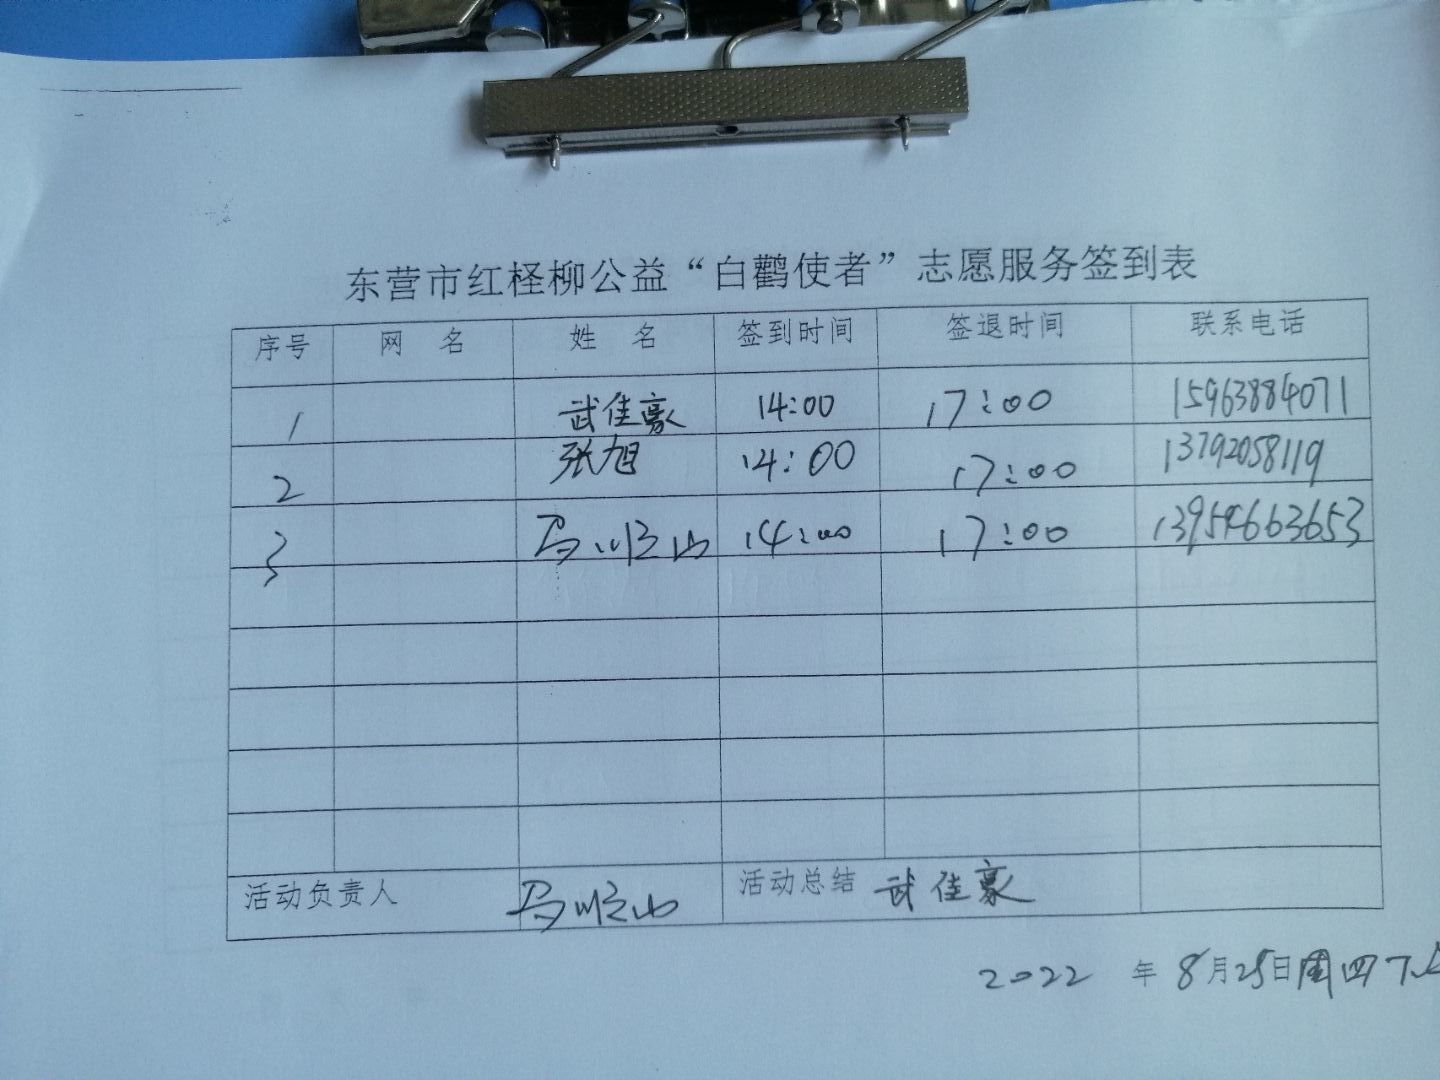 东营市红柽柳公益“白鹳使者”志愿服务签到表
序号 网 名 姓 名 签到时间 签退时间 联系电话
1 武佳豪 14:00 17:00 15963884071
2 张旭 14:00 17:00 13792058119
3 马顺山 14:00 17:00 13954663653
活动负责人 马顺山 活动总结 武佳豪
2022 年 8月25日周四下